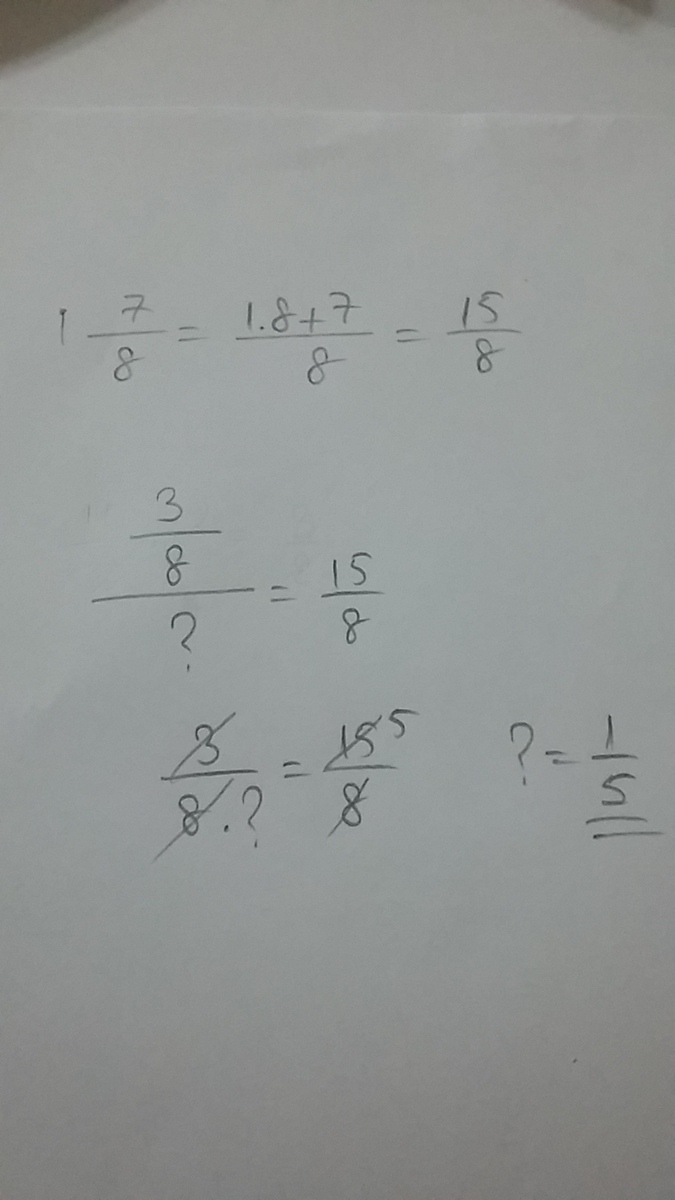 1 7/8 = 1.8+7/8 = 15/8
3/8/? = 15/8
3/8.? = 15 5/8 ? = 1/5